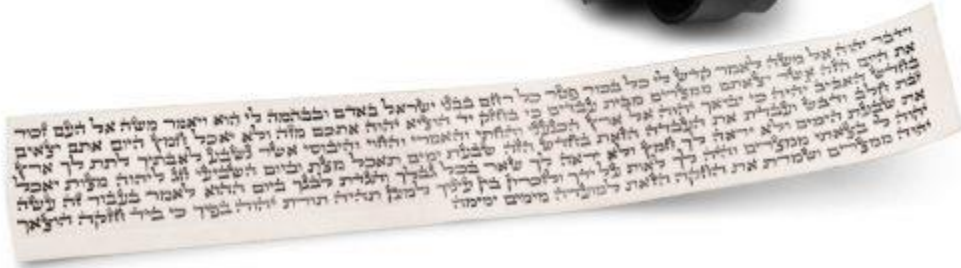 וידבר יהוה אל משה לאמר קדש לי כל בכור פטר כל רחם בבני ישראל באדם ובבהמה לי הוא ויאמר משה אל העם זכור
את היום הזה אשר יצאתם ממצרים מבית עבדים כי בחזק יד הוציא יהוה אתכם מזה ולא יאכל חמץ היום אתם יצאים
בחדש האביב והיה כי יביאך יהוה אל ארץ הכנעני והחתי והאמרי והחוי והיבוסי אשר נשבע לאבתיך לתת לך ארץ
זבת חלב ודבש ועבדת את העבדה הזאת בחדש הזה שבעת ימים תאכל מצת וביום השביעי חג ליהוה מצות יאכל
את שבעת הימים ולא יראה לך חמץ ולא יראה לך שאר בכל גבלך והגדת לבנך ביום ההוא לאמר בעבור זה עשה
יהוה לי בצאתי ממצרים והיה לך לאות על ידך ולזכרון בין עיניך למען תהיה תורת יהוה בפיך כי ביד חזקה הוצאך
יהוה ממצרים ושמרת את החקה הזאת למועדה מימים ימימה